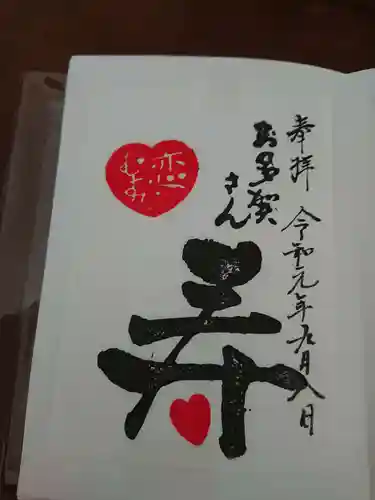 奉拝 令和元年九月八日
お多賀さん
寿
恋
むすび